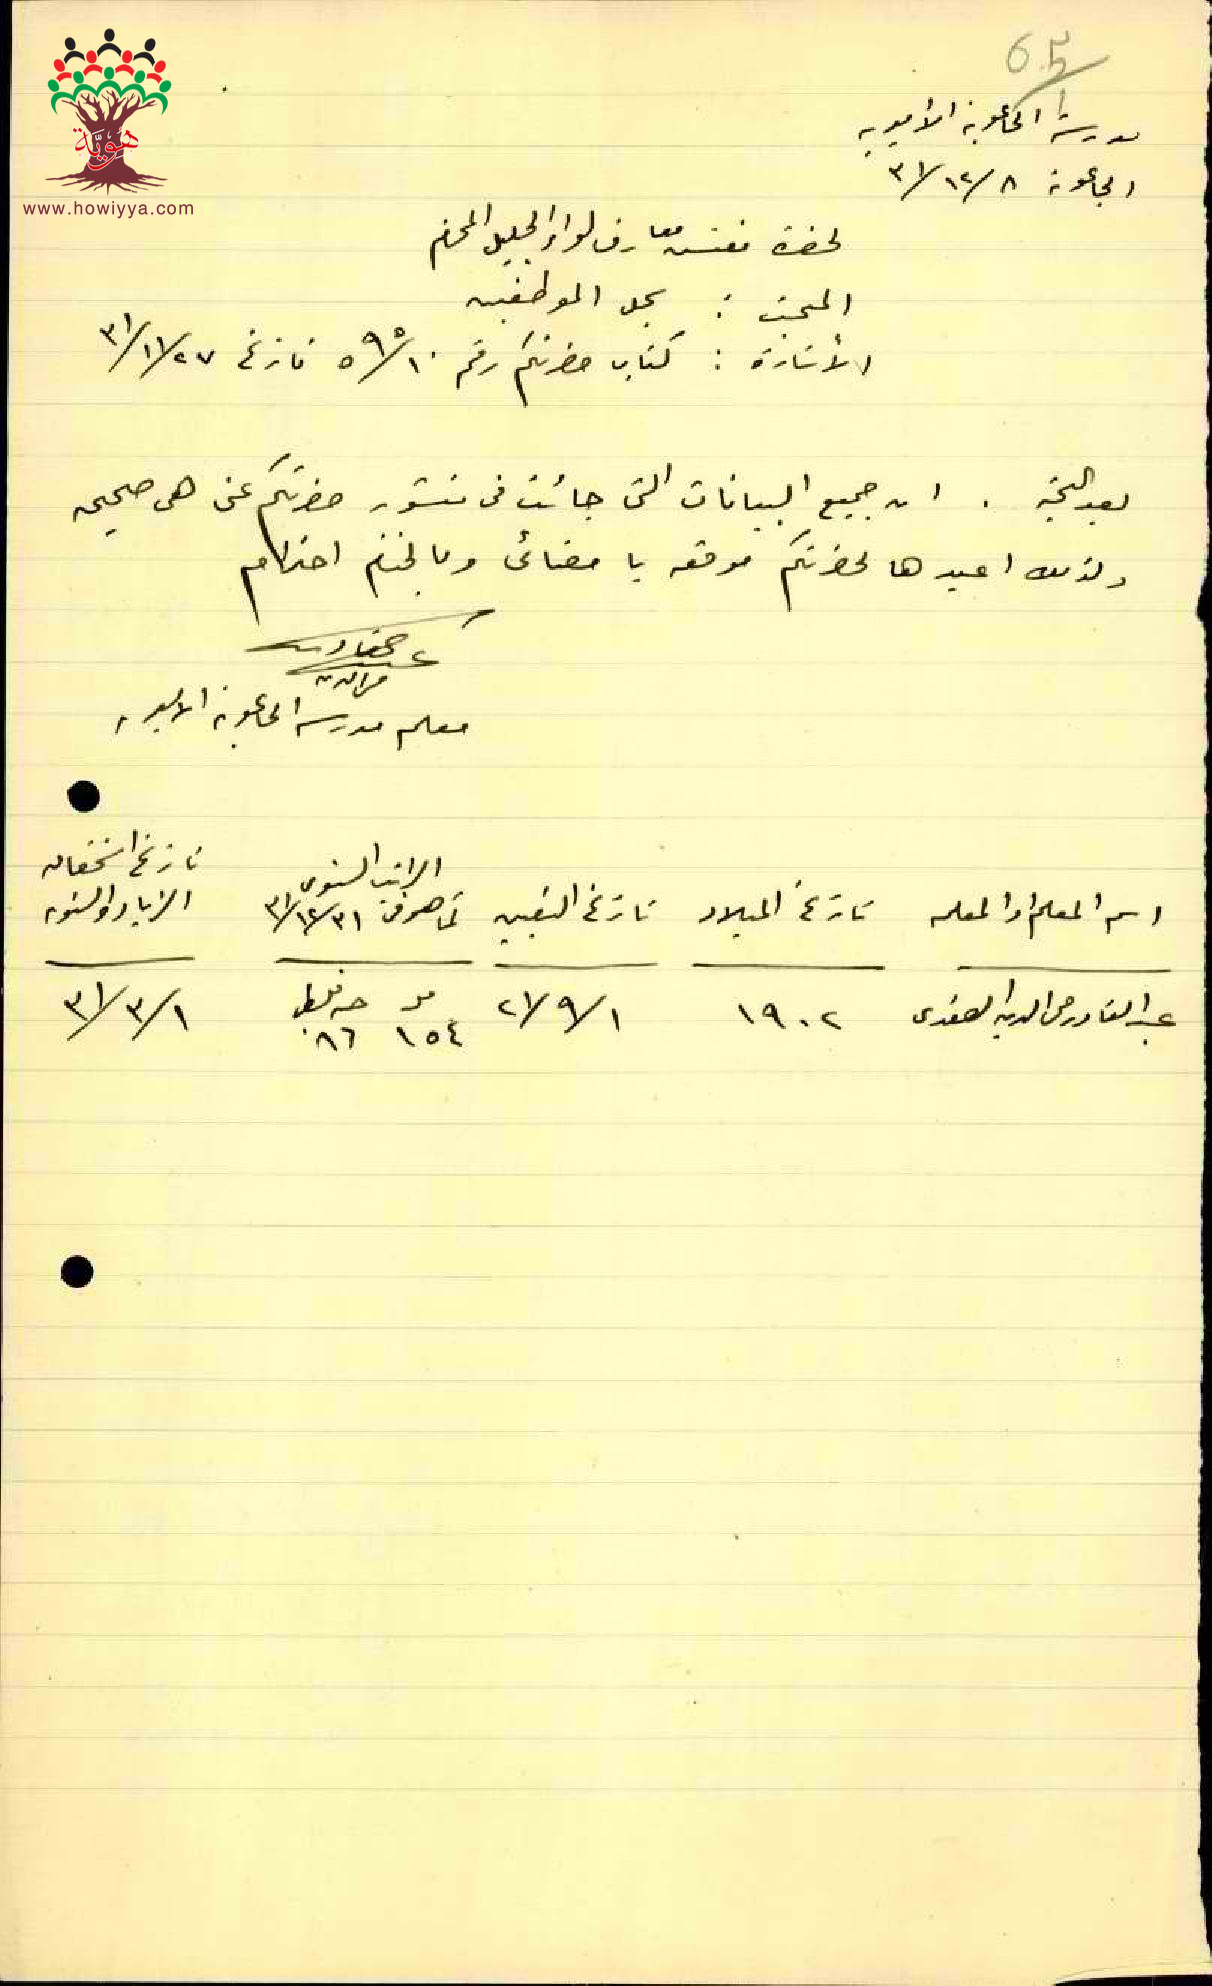 هوية
www.howiyya.com
65
مدرسة الجاعونة الاميرية
الجاعونة ٨/١٢/٣١
لحضرة مفتش معارف لواء الجليل المحترم
المبحث : سجل الموظفين
الأشارة : كتاب حضرتكم رقم ٥٩٥/١٠ تاريخ ٢٧/١١/٣١
بعد التحية . ان جميع البيانات التى جائت فى منشور حضرتكم عنى هى صحيحه
ولذلك اعيدها لحضرتكم موقعه بامضائى ومالختم احترام
عبد القادر
معلم مدرسة الجاعونة الاميرية
اسم المعلم او المعلمه تاريخ الميلاد تاريخ التعيين الراتب السنوى كما هو فى ٣١/١٢/٣١ تاريخ استحقاق الزيادة السنويه
عبد القادر محى الدين الصفدى ١٩٠٢ ١/٩/٢١ ١٥٤ ٨٦٠ ١/٣/٣١